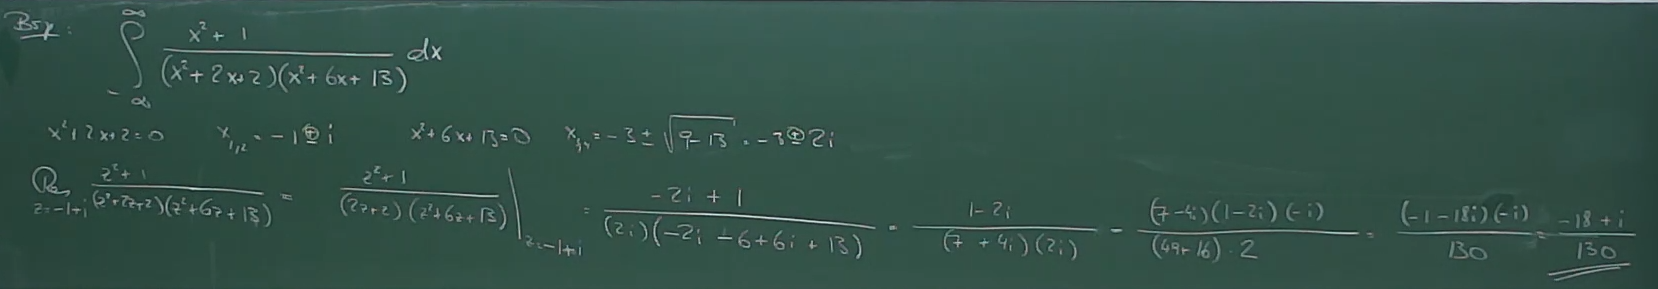 Bsp.: ∫_{-∞}^{∞} (x²+1)/((x²+2x+2)(x²+6x+13)) dx
x²+2x+2=0   x_{1,2} = -1 ± i   x²+6x+13=0   x_{3,4} = -3 ± √(9-13) = -3 ± 2i
Res_{z=-1+i} (z²+1)/((z²+2z+2)(z²+6z+13)) = (z²+1)/((2z+2)(z²+6z+13)) |_{z=-1+i} = (-2i+1)/((2i)(-2i-6+6i+13)) = (1-2i)/((7+4i)(2i)) = ((7-4i)(1-2i)(-i))/((49+16)·2) = ((-1-18i)(-i))/130 = (-18+i)/130